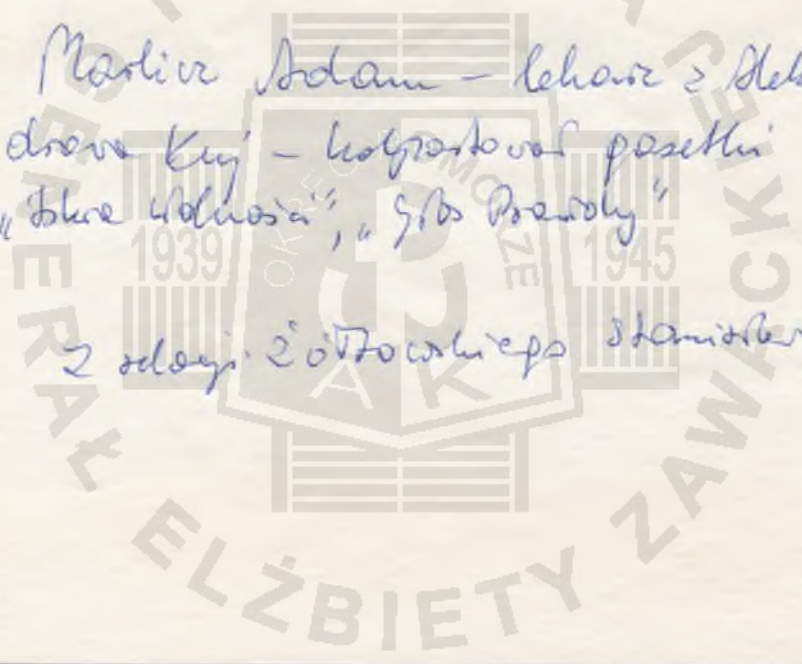 Marlicz Adam – lekarz z Alek
drowa Kuj – kolportował gazetki
„Iskra wolności”, „Głos Prawdy”
Z relacji Żółtowskiego Stanisław
1939
1945
OKRĘG POMORZE
AK
GENERAŁ ELŻBIETY ZAWACKIEJ